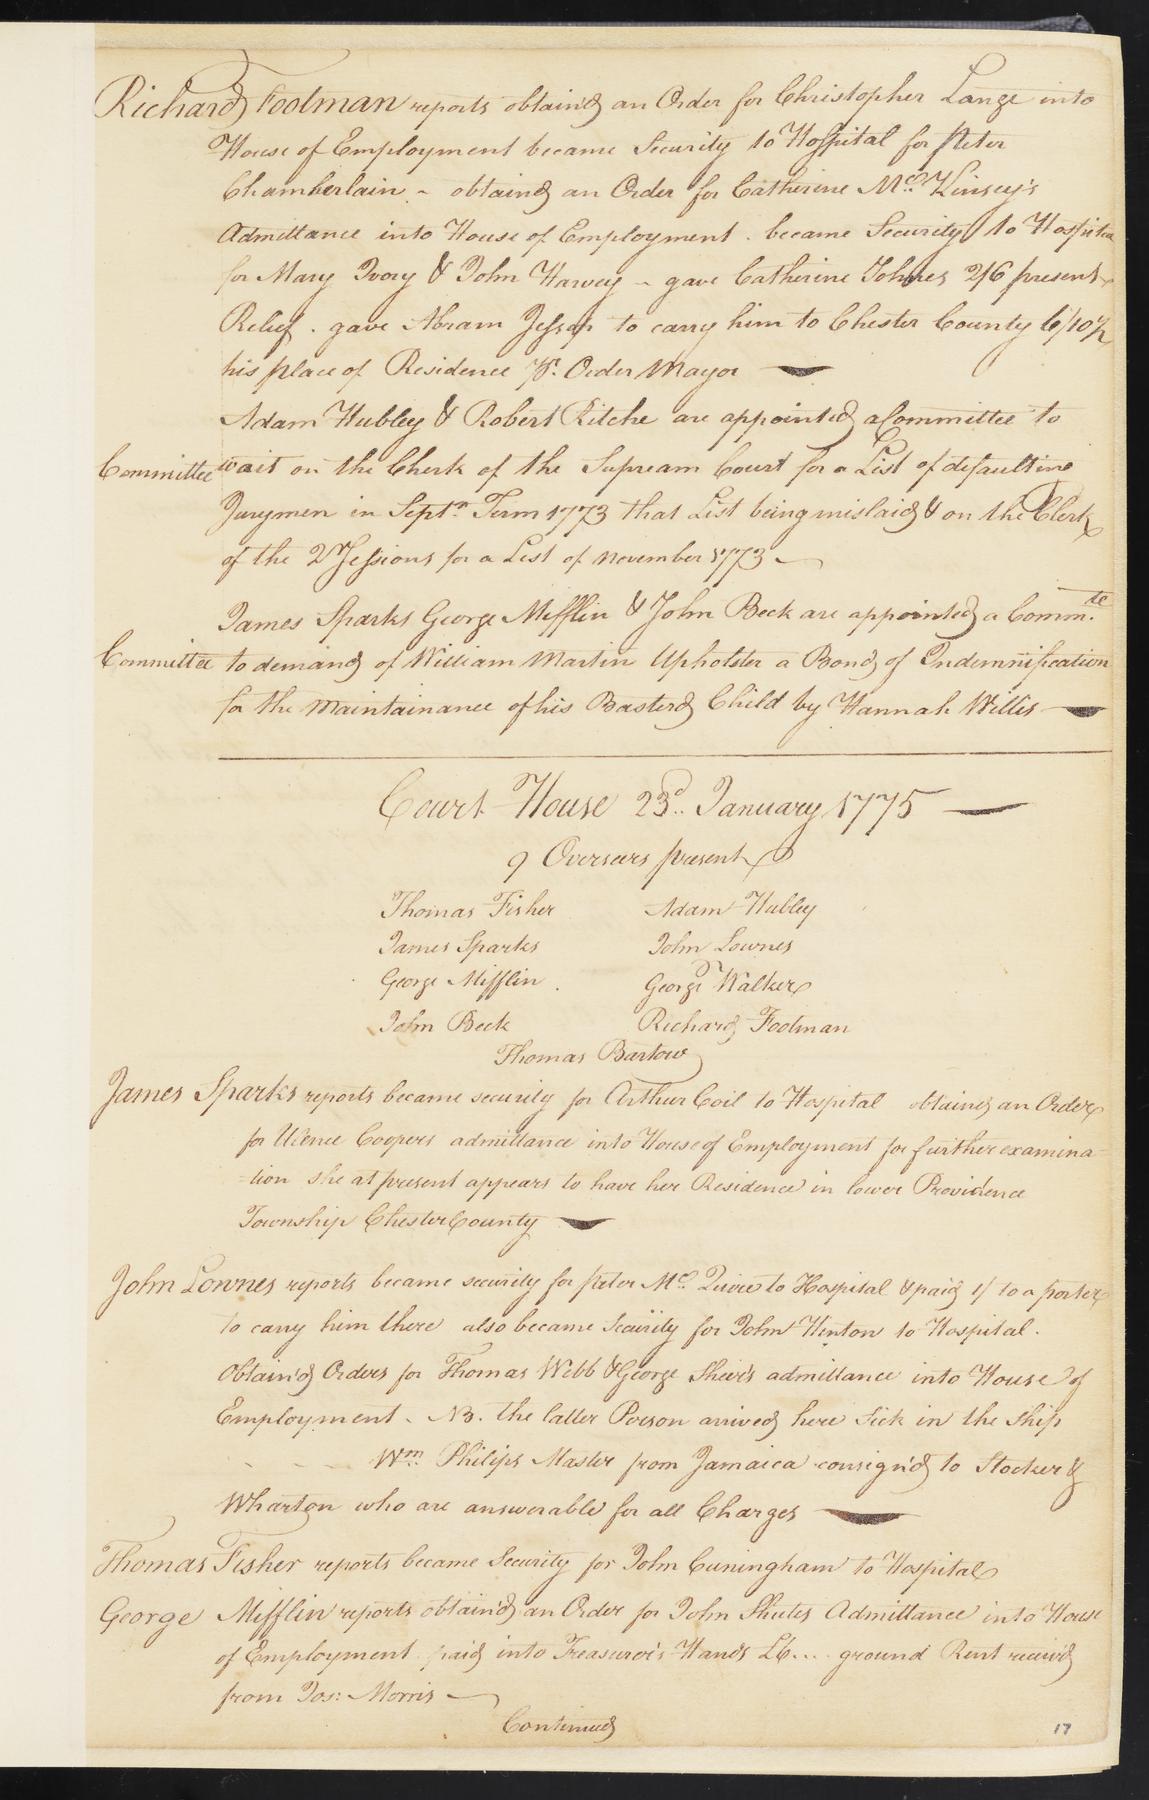 Richard Footman reports obtain'd an Order for Christopher Lange into
House of Employment became Security to Hospital for Peter
Chamberlain - obtaind an Order for Catherine McKinsey's
Admittance into House of Employment . became Security to Hospital
for Mary Ivory & John Harvey - gave Catherine Johnes 2/6 present
Relief . gave Abram Jessop to carry him to Chester County 6/10½
his place of Residence Pr. Order Mayor
Adam Hubley & Robert Ritche are appointed a Committee to
Committee wait on the Cherk of the Supream Court for a List of defaulting
Jurymen in Septr. Term 1773 that List being mislaid & on the Clerk
of the 2 Sessions for a List of november 1773
James Sparks George Mifflin & John Beck are appointed a Committe
Committee to demand of William Martin Upholster a Bond of Indemnification
for the Maintainance of his Basterd Child by Hannah Willis
Court House 23d. January 1775
9 Overseers present
Thomas Fisher Adam Hubley
James Sparks John Lownes
George Mifflin George Walker
John Beck Richard Footman
Thomas Bartow
James Sparks reports became security for Arthur Coil to Hospital obtained an Order
for Coopers admittance into House of Employment for further examina-
-tion she at present appears to have her Residence in lower Providence
Township Chester County
John Lownes reports became security for Peter Mc Quire to Hospital & paid 1/ to a porter
to carry him there also became Security for John Henton to Hospital.
Obtain'd Orders for Thomas Webb & George Sheir's admittance into House of
Employment . NB. the latter Person arrived here Sick in the Ship
- - - - Wm. Philips Master from Jamaica consign'd to Stocker &
Wharton who are answerable for all Charges
Thomas Fisher reports became Security for John Cuningham to Hospital
George Mifflin reports obtain'd an Order for John Shutes Admittance into House
of Employment paid into Treasurer's Hands L6 .... ground Rent receiv'd
from Jos: Morris
Continued
17